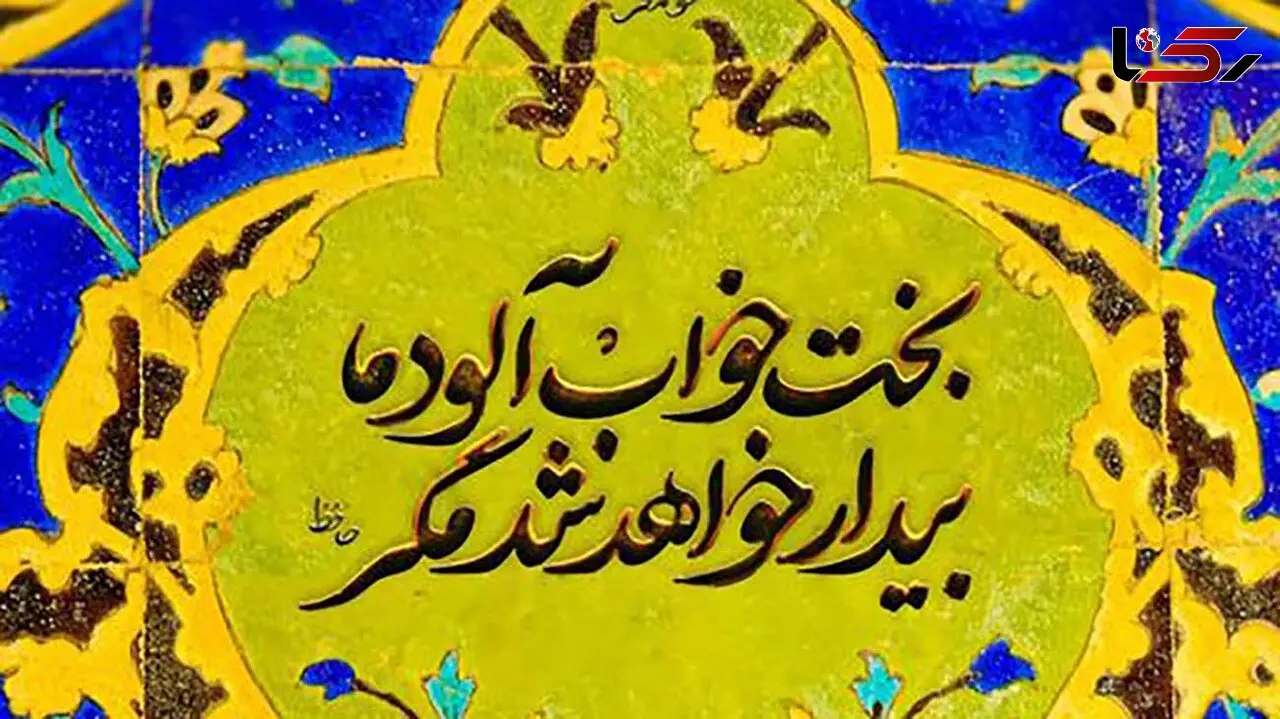 رکنا
بخت خواب آلود ما
بیدار خواهد شد مگر
حافظ